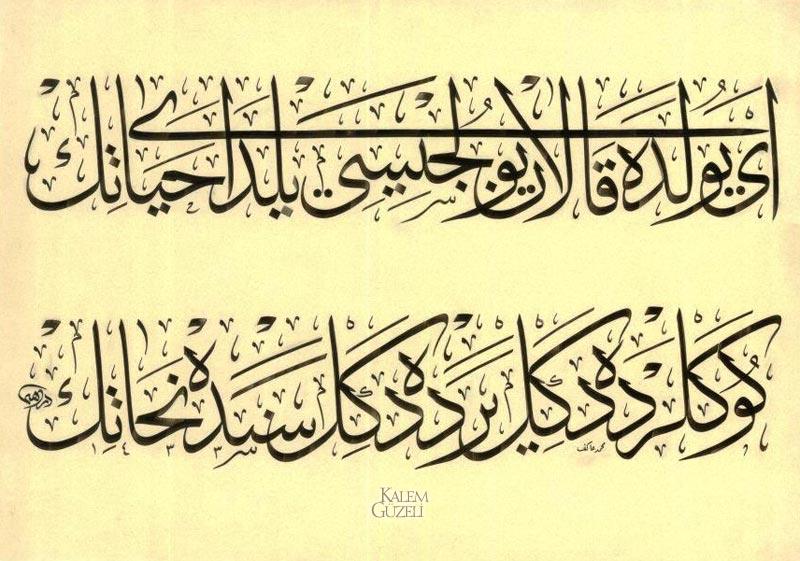 ای یولده قالان یولجیسی یلدای حیاتك
كوكلرده دكل یرده دكل سنده نجاتك
محمد عاكف
١٤٣٣
KALEM
GÜZELİ